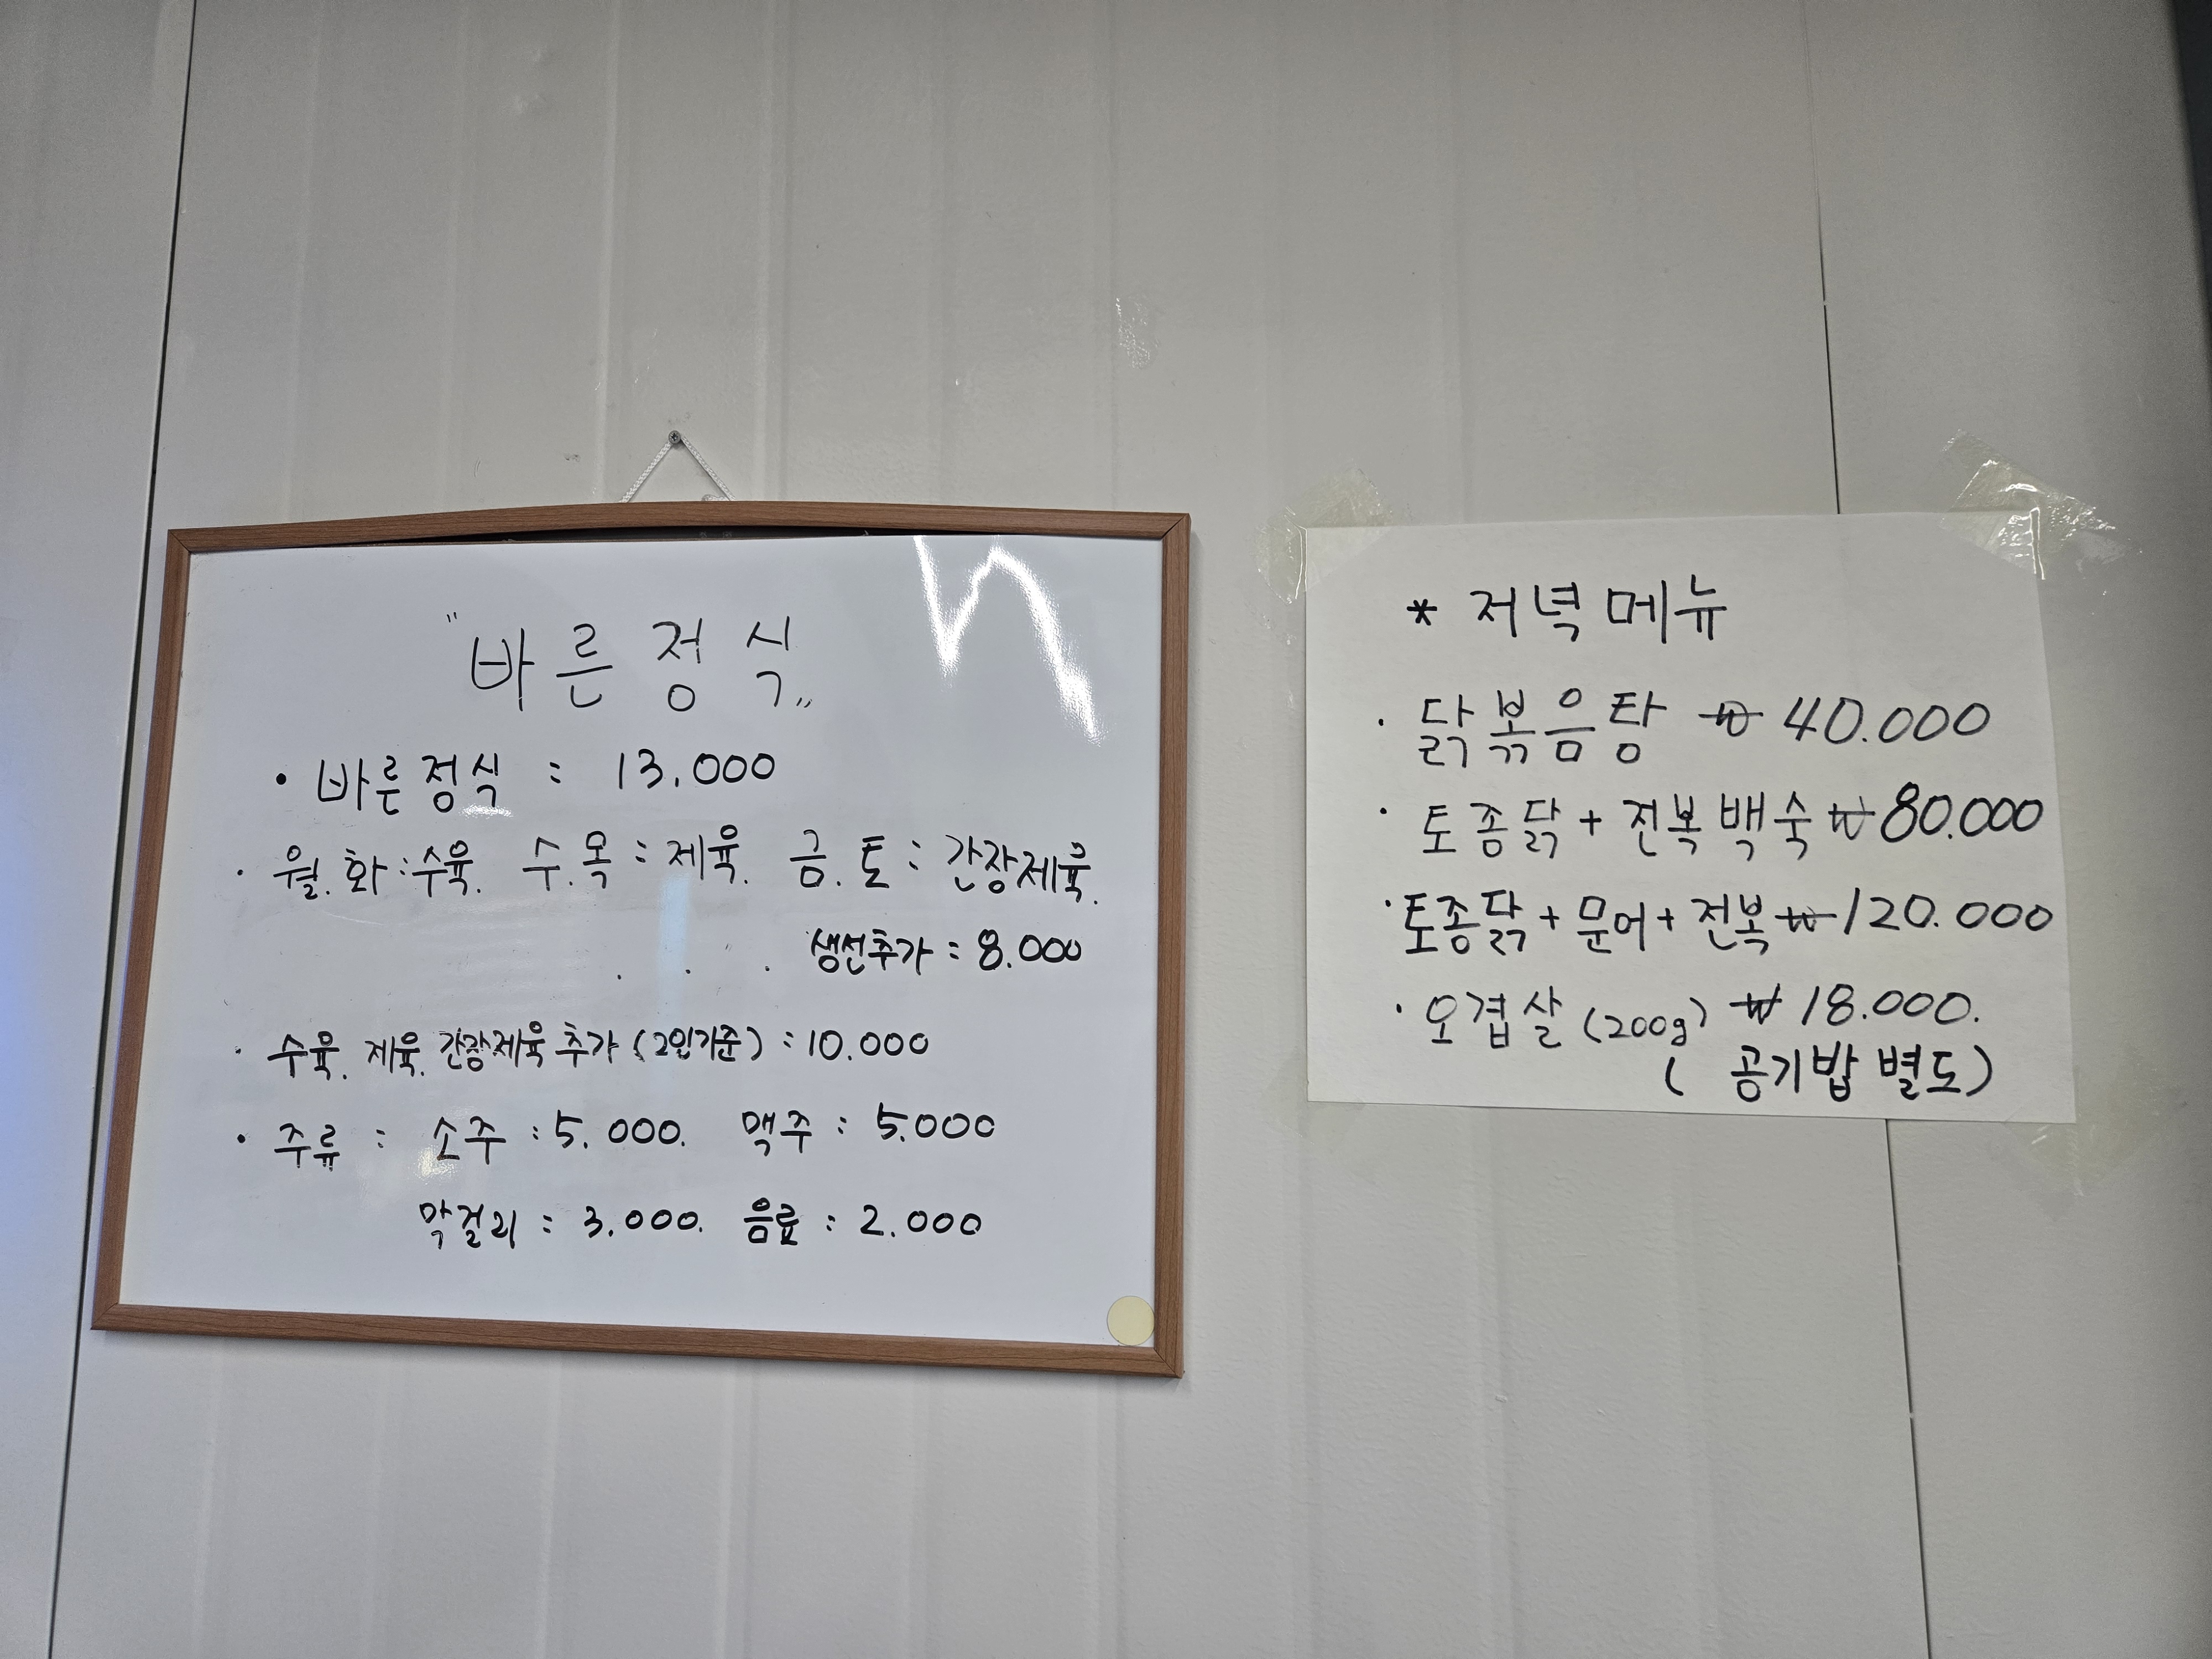 "바른정식"
• 바른정식 : 13.000
· 월.화:수육. 수.목:제육. 금.토:간장제육.
생선추가 : 8.000
· 수육. 제육. 간장제육 추가 (2인기준) : 10.000
• 주류 : 소주 : 5.000. 맥주 : 5.000
막걸리 : 3.000. 음료 : 2.000
* 저녁메뉴
· 닭볶음탕 ₩ 40.000
· 토종닭 + 전복백숙 ₩ 80.000
· 토종닭 + 문어 + 전복 ₩ 120.000
· 오겹살 (200g) ₩ 18.000.
( 공기밥 별도)